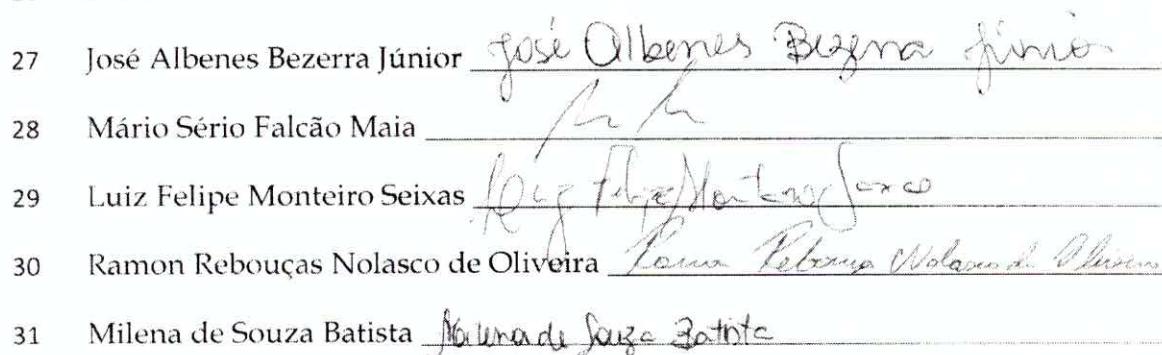 27 José Albenes Bezerra Júnior José Albenes Bezerra Júnior
28 Mário Sério Falcão Maia
29 Luiz Felipe Monteiro Seixas Luiz Felipe Monteiro Seixas
30 Ramon Rebouças Nolasco de Oliveira Ramon Rebouças Nolasco de Oliveira
31 Milena de Souza Batista Milena de Souza Batista